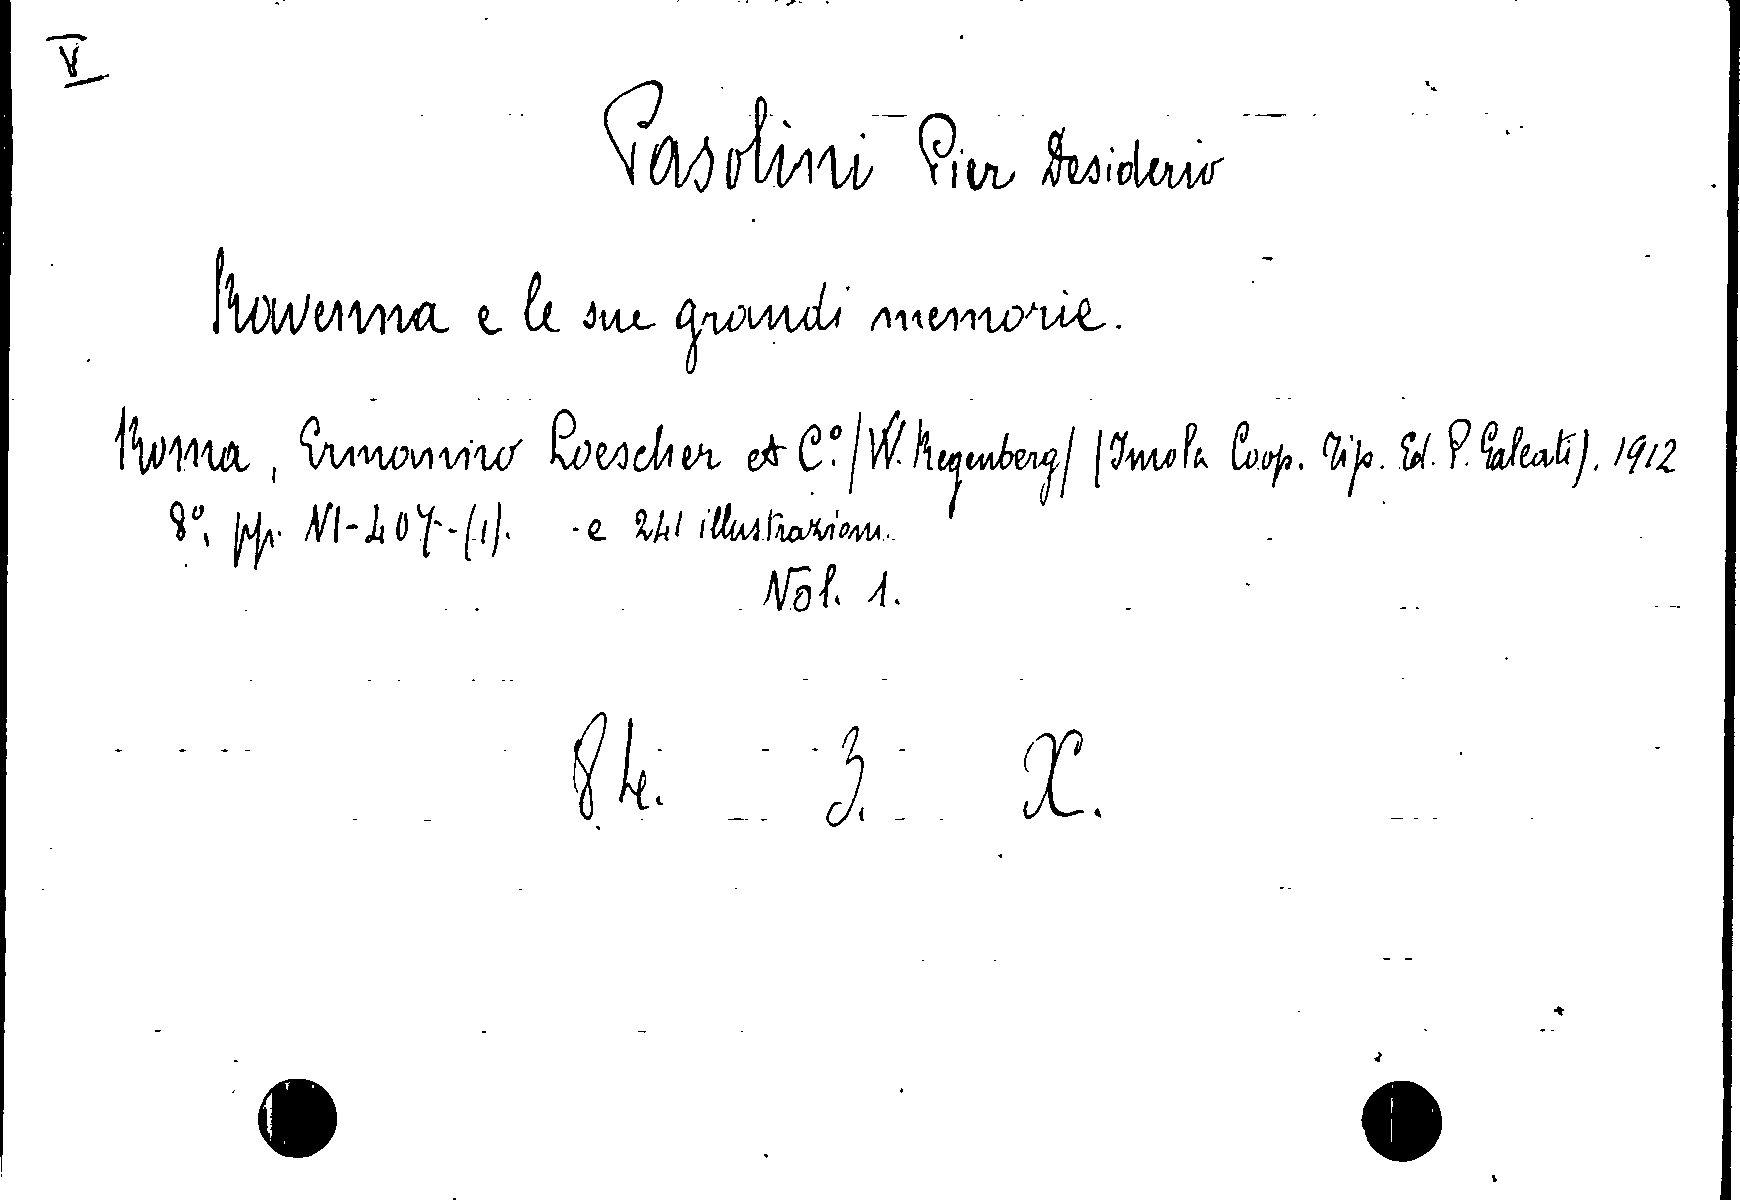 V
Pasolini Pier Desiderio
Ravenna e le sue grandi memorie.
Roma, Ermanno Loescher et C.º /W. Regenberg/ (Imola Coop. Tip. Ed. P. Galeati). 1912
8º. pp. VI-407-(1). - e 241 illustrazioni.
Vol. 1.
84. 3. X.